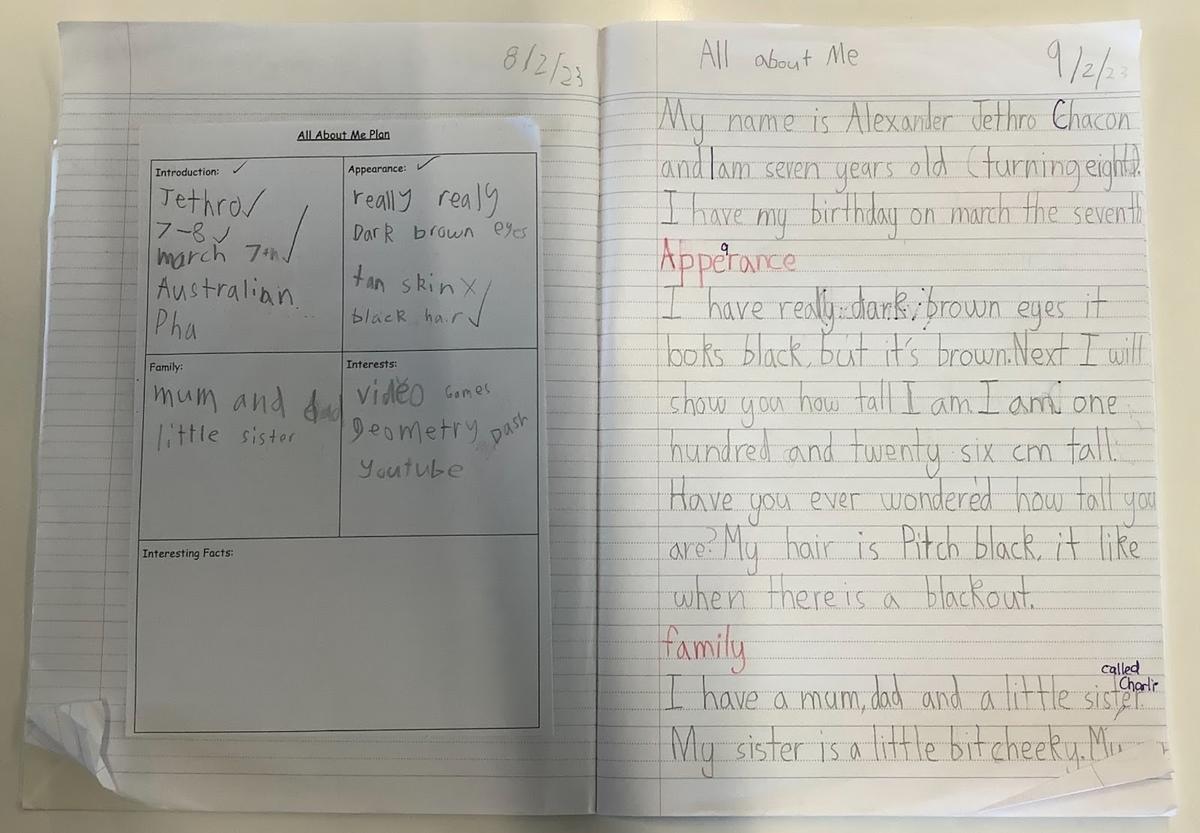 8/2/23
All About Me Plan
Introduction: ✓
Jethro ✓
7-8 ✓
march 7th ✓
Australian
Pha
Appearance: ✓
really realy
Dark brown eyes
tan skin x
black hair ✓
Family:
mum and dad
little sister
Interests:
video Games
geometry Dash
Youtube
Interesting Facts:
All about Me
9/2/23
My name is Alexander Jethro Chacon
and I am seven years old (turning eight).
I have my birthday on march the seventh
Apperance
a
I have really dark brown eyes it
looks black, but it's brown. Next I will
show you how tall I am. I am one
hundred and twenty six cm tall.
Have you ever wondered how tall you
are? My hair is Pitch black, it like
when there is a blackout.
family
called
Charli
I have a mum, dad and a little sister.
My sister is a little bit cheeky.